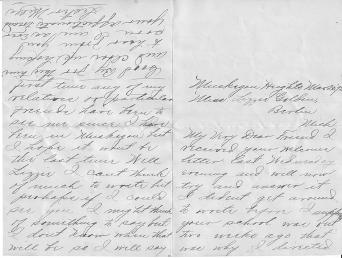 Muskegon Heights Mar
Miss Lizzie
Mich
My Very Dear Friend I
received your welcome
letter last Wednesday
evening and will now
try and answer it
I didn't get around
to write before I
your school was out
two weeks ago that
was why I
first time any of my
relation or particular
friends have been to
see me since I have
been in Muskegon but
I hope it wont be
the last time Well
Lizzie I cant think
of much to write but
perhaps if I could
see you I might think
of something to say but
I dont know when that
will be so I will say
Good by for this time
and close up hoping
to hear from you
soon I am as ever
Your affectionate friend